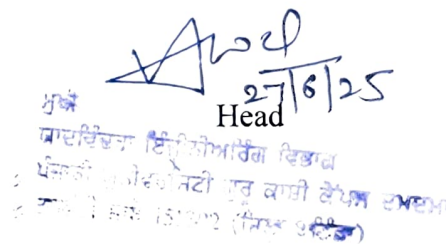 27/6/25
Head
ਮੁਖੀ
ਯਾਦਵਿੰਦਰਾ ਇੰਜੀਨੀਅਰਿੰਗ ਵਿਭਾਗ
ਪੰਜਾਬੀ ਯੂਨੀਵਰਸਿਟੀ ਗੁਰੂ ਕਾਸ਼ੀ ਕੈਂਪਸ ਦਮਦਮਾ
(ਜ਼ਿਲ੍ਹਾ ਬਠਿੰਡਾ)